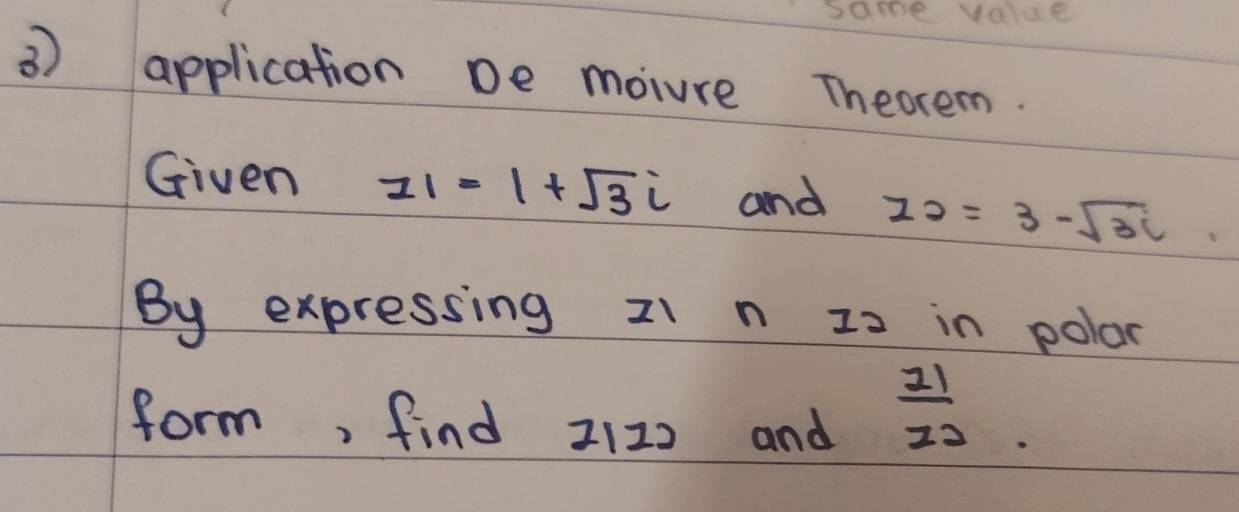 same value
3) application De moivre Theorem.
Given z1 = 1 + √3i and z2 = 3 - √3i.
By expressing z1 n z2 in polar
form, find z1z2 and z1/z2.